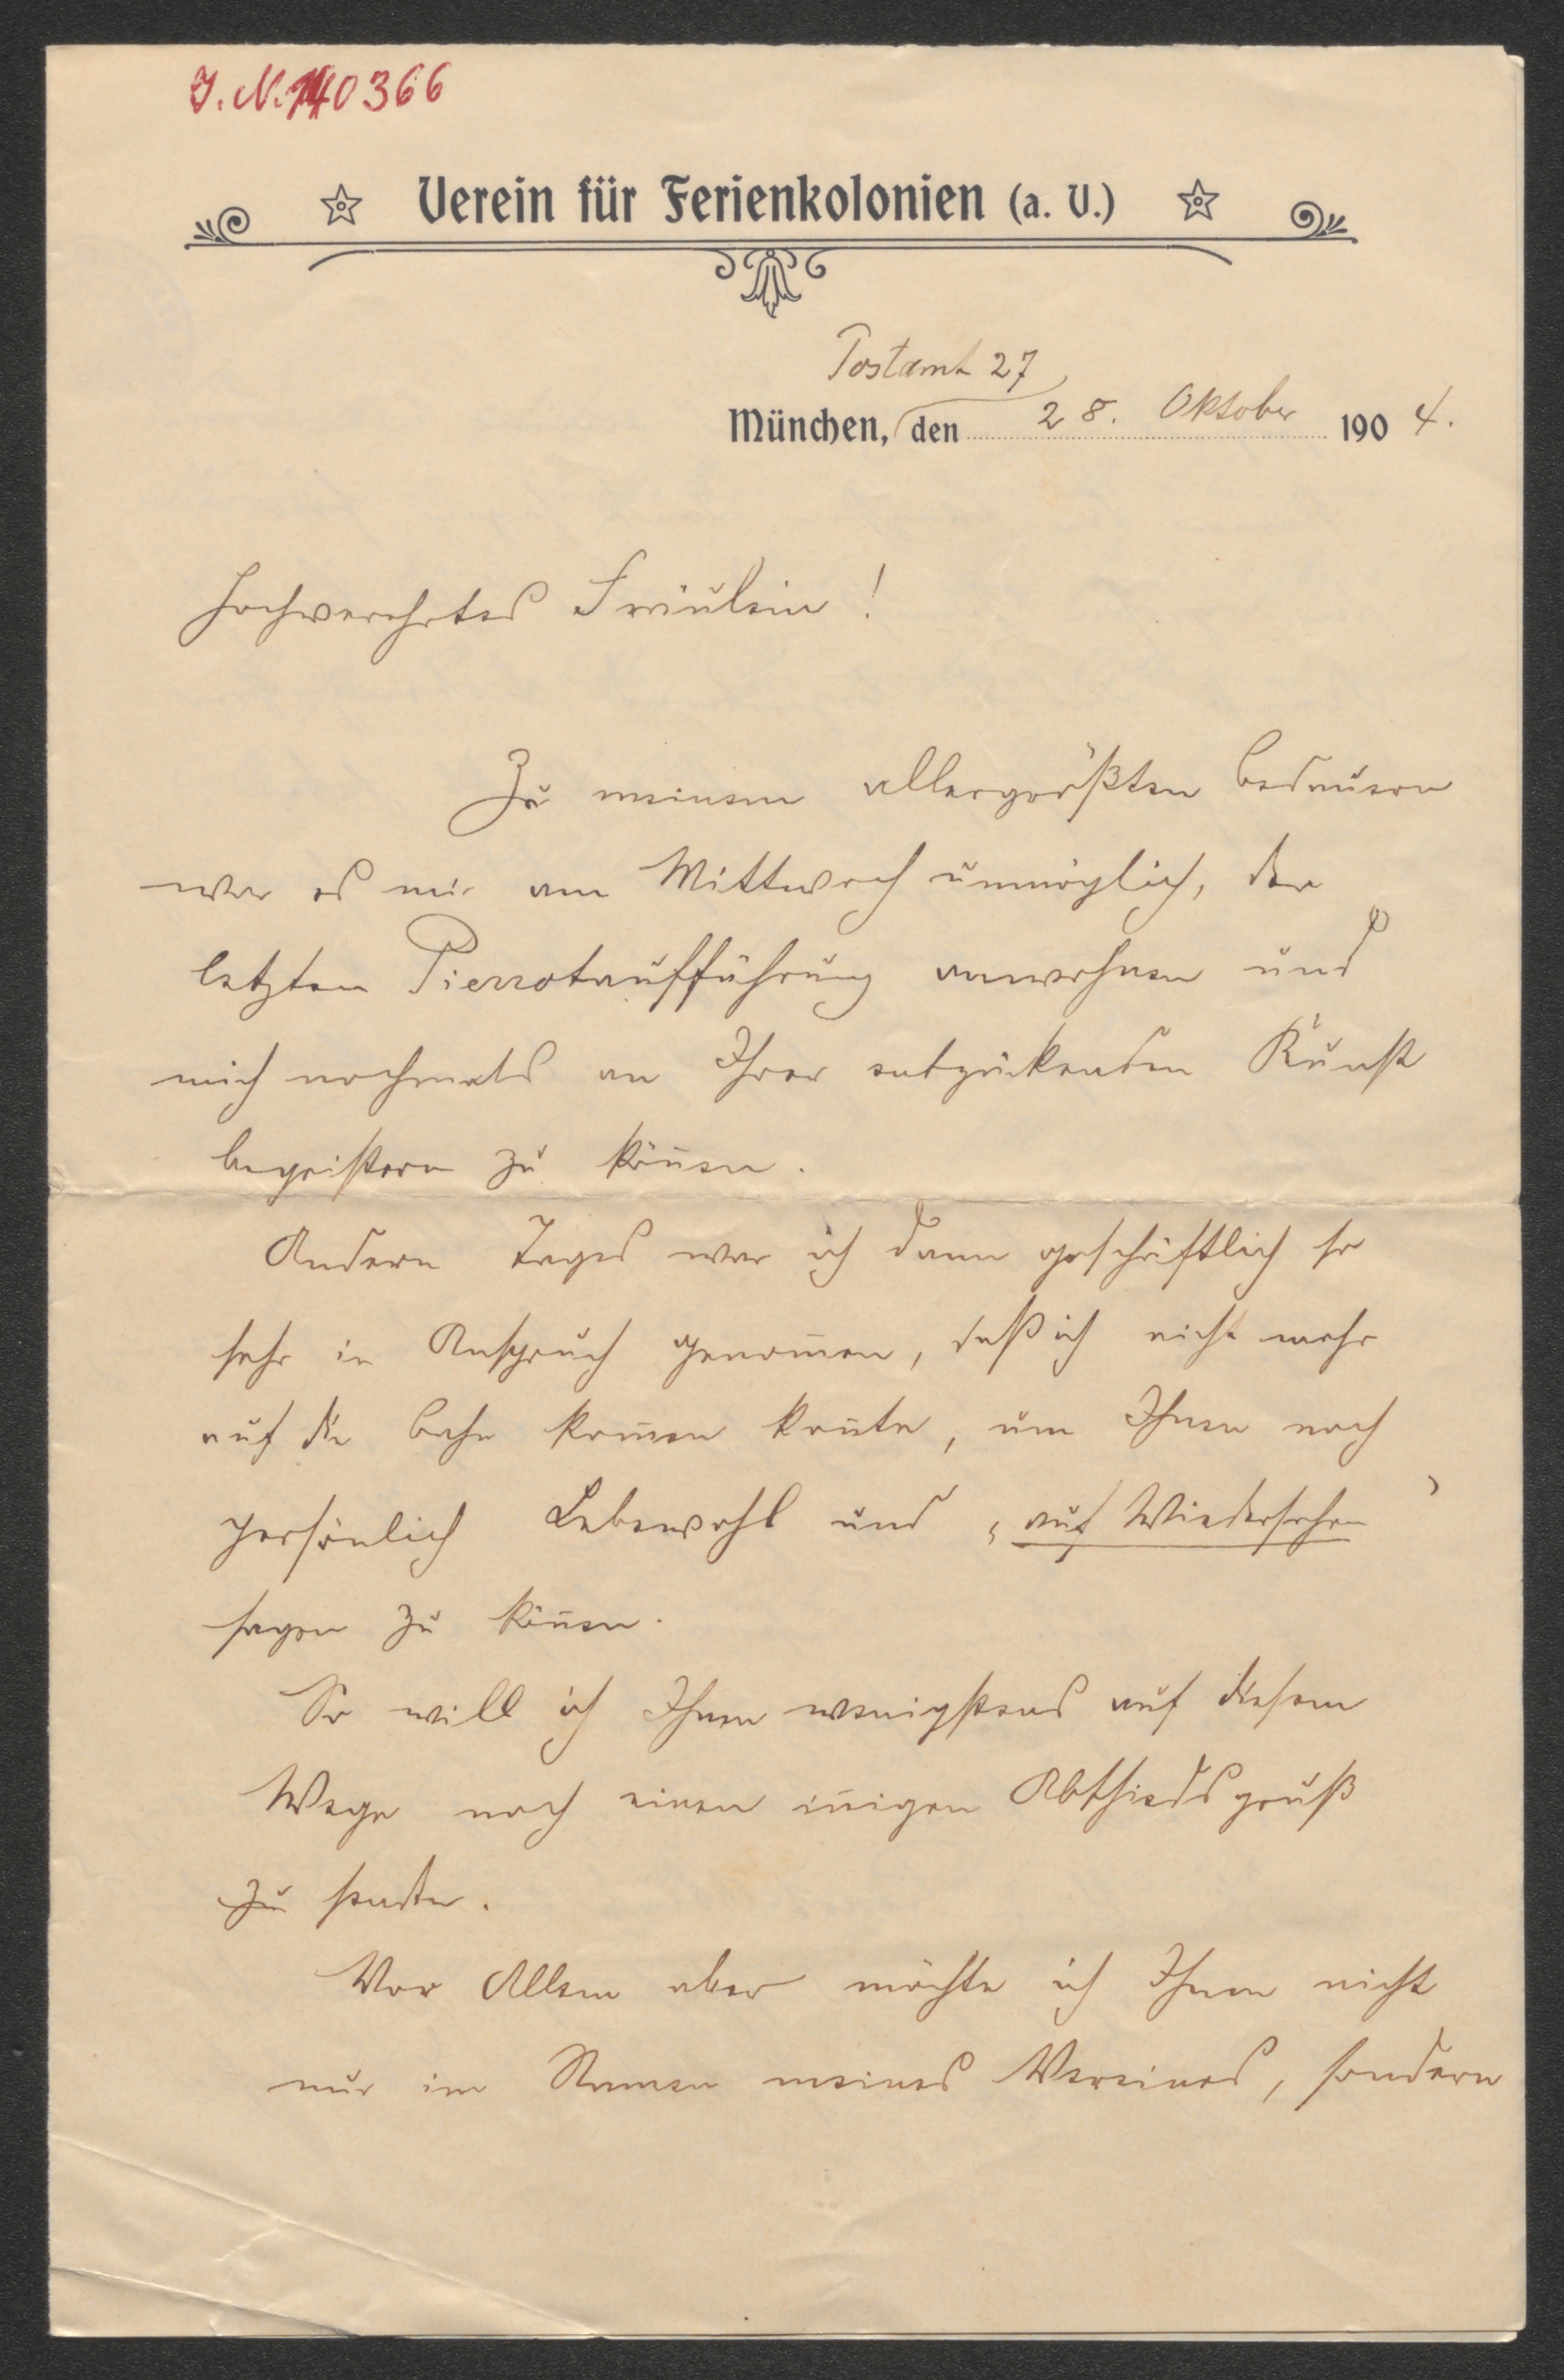 J. N. 140366
Verein für Ferienkolonien (a. V.)
Postamt 27
München, den 28. Oktober 1904.
Hochverehrtes Fräulein!
Zu meinem allergrößten Bedauern
war es mir am Mittwoch unmöglich, der
letzten Pierrotaufführung anwohnen und
mich nochmals an Ihrer entzückenden Kunst
begeistern zu koñen.
Andern Tages war ich dann geschäftlich so
sehr in Anspruch genom̄en, daß ich nicht mehr
auf die Bahn kom̄en kon̄te, um Ihnen noch
persönlich Lebewohl und „auf Wiedersehen"
sagen zu kön̄en.
So will ich Ihnen wenigstens auf diesem
Wege noch einen in̄igen Abschiedsgruß
zu senden.
Vor Allem aber möchte ich Ihnen nicht
nur im Namen meines Vereines, sondern